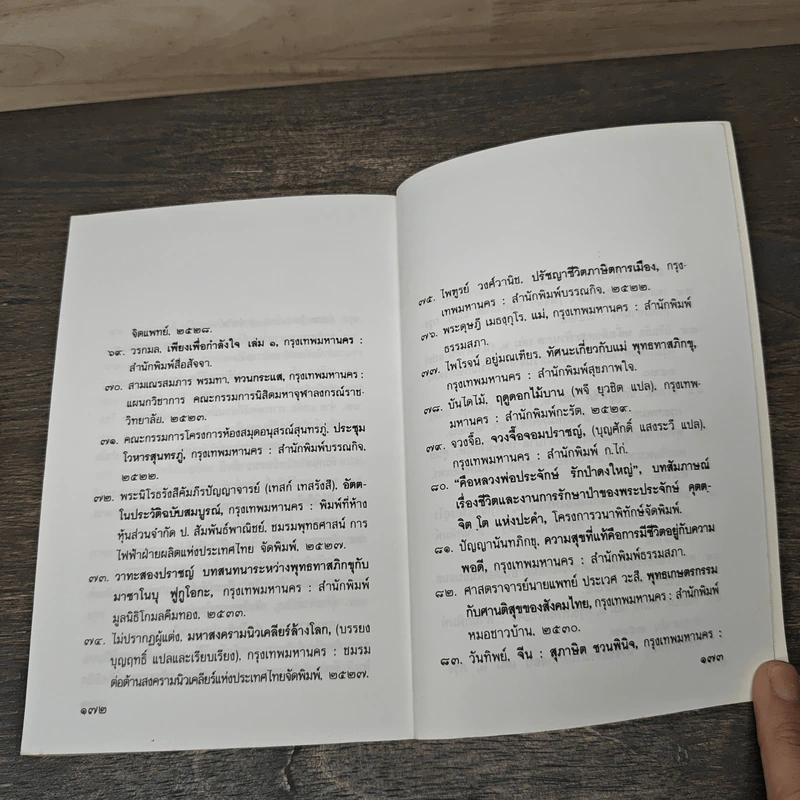 จิตแพทย์. ๒๕๒๘.
๖๙. วรกมล. เพียงเพื่อกำลังใจ เล่ม ๑, กรุงเทพมหานคร :
สำนักพิมพ์สื่อสัจจา.
๗๐. สามเณรสมภาร พรมทา. ทวนกระแส, กรุงเทพมหานคร :
แผนกวิชาการ คณะกรรมการนิสิตมหาจุฬาลงกรณ์ราช-
วิทยาลัย. ๒๕๒๓.
๗๑. คณะกรรมการโครงการห้องสมุดอนุสรณ์สุนทรภู่. ประชุม
โวหารสุนทรภู่, กรุงเทพมหานคร : สำนักพิมพ์บรรณกิจ.
๒๕๒๒.
๗๒. พระนิโรธรังสีคัมภีรปัญญาจารย์ (เทสก์ เทสรังสี). อัตต-
โนประวัติฉบับสมบูรณ์, กรุงเทพมหานคร : พิมพ์ที่ห้าง
หุ้นส่วนจำกัด ป. สัมพันธ์พาณิชย์. ชมรมพุทธศาสน์ การ
ไฟฟ้าฝ่ายผลิตแห่งประเทศไทย จัดพิมพ์. ๒๕๒๗.
๗๓. วาทะสองปราชญ์ บทสนทนาระหว่างพุทธทาสภิกขุกับ
มาซาโนบุ ฟูกูโอกะ, กรุงเทพมหานคร : สำนักพิมพ์
มูลนิธิโกมลคีมทอง. ๒๕๓๓.
๗๔. ไม่ปรากฏผู้แต่ง. มหาสงครามนิวเคลียร์ล้างโลก, (บรรยง
บุญฤทธิ์ แปลและเรียบเรียง). กรุงเทพมหานคร : ชมรม
ต่อต้านสงครามนิวเคลียร์แห่งประเทศไทยจัดพิมพ์. ๒๕๒๗.
๑๗๒
๗๕. ไพฑูรย์ วงศ์วานิช. ปรัชญาชีวิตภาษิตการเมือง, กรุง-
เทพมหานคร : สำนักพิมพ์บรรณกิจ. ๒๕๒๒.
๗๖. พระดุษฎี เมธงฺกุโร. แม่, กรุงเทพมหานคร : สำนักพิมพ์
ธรรมสภา.
๗๗. ไพโรจน์ อยู่มณเฑียร. ทัศนะเกี่ยวกับแม่ พุทธทาสภิกขุ,
กรุงเทพมหานคร : สำนักพิมพ์สุขภาพใจ.
๗๘. บันไดไม้. ฤดูดอกไม้บาน (พจี ยุวชิต แปล). กรุงเทพ-
มหานคร : สำนักพิมพ์กะรัต. ๒๕๒๙.
๗๙. จวงจื๊อ, จวงจื๊อจอมปราชญ์, (บุญศักดิ์ แสงระวี แปล).
กรุงเทพมหานคร : สำนักพิมพ์ ก.ไก่.
๘๐. “คือหลวงพ่อประจักษ์ รักป่าดงใหญ่”, บทสัมภาษณ์
เรื่องชีวิตและงานการรักษาป่าของพระประจักษ์ คุตต-
จิต โต แห่งปะคำ, โครงการวนาพิทักษ์จัดพิมพ์.
๘๑. ปัญญานันทภิกขุ. ความสุขที่แท้คือการมีชีวิตอยู่กับความ
พอดี, กรุงเทพมหานคร : สำนักพิมพ์ธรรมสภา.
๘๒. ศาสตราจารย์นายแพทย์ ประเวศ วะสี. พุทธเกษตรกรรม
กับศานติสุขของสังคมไทย, กรุงเทพมหานคร : สำนักพิมพ์
หมอชาวบ้าน. ๒๕๓๐.
๘๓. วันทิพย์. จีน : สุภาษิต ชวนพินิจ, กรุงเทพมหานคร :
๑๗๓